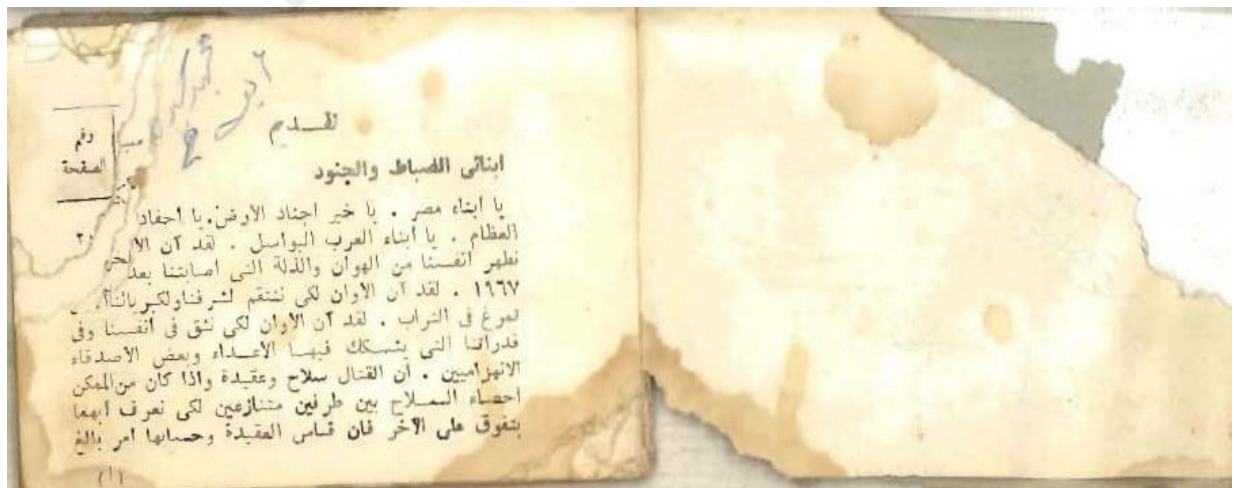 تقـــديم
ابنائى الضباط والجنود
يا أبناء مصر . يا خير اجناد الأرض. يا أحفاد
العظام . يا أبناء العرب البواسل . لقد آن الا
نطهر أنفسنا من الهوان والذلة التى اصابتنا بعد
١٩٦٧ . لقد آن الأوان لكى ننتقم لشرفنا ولكبريائنا
تمرغ فى التراب . لقد آن الأوان لكى نثق فى أنفسنا وفى
قدراتنا التى يشــكك فيهــا الأعــداء وبعض الأصدقاء
الانهزاميين . أن القتال سلاح وعقيدة واذا كان من الممكن
احصاء الســلاح بين طرفين متنازعين لكى نعرف ايهما
يتفوق على الآخر فان قياس العقيدة وحسابها امر بالغ
(١)
رقم
الصفحة
٢٠